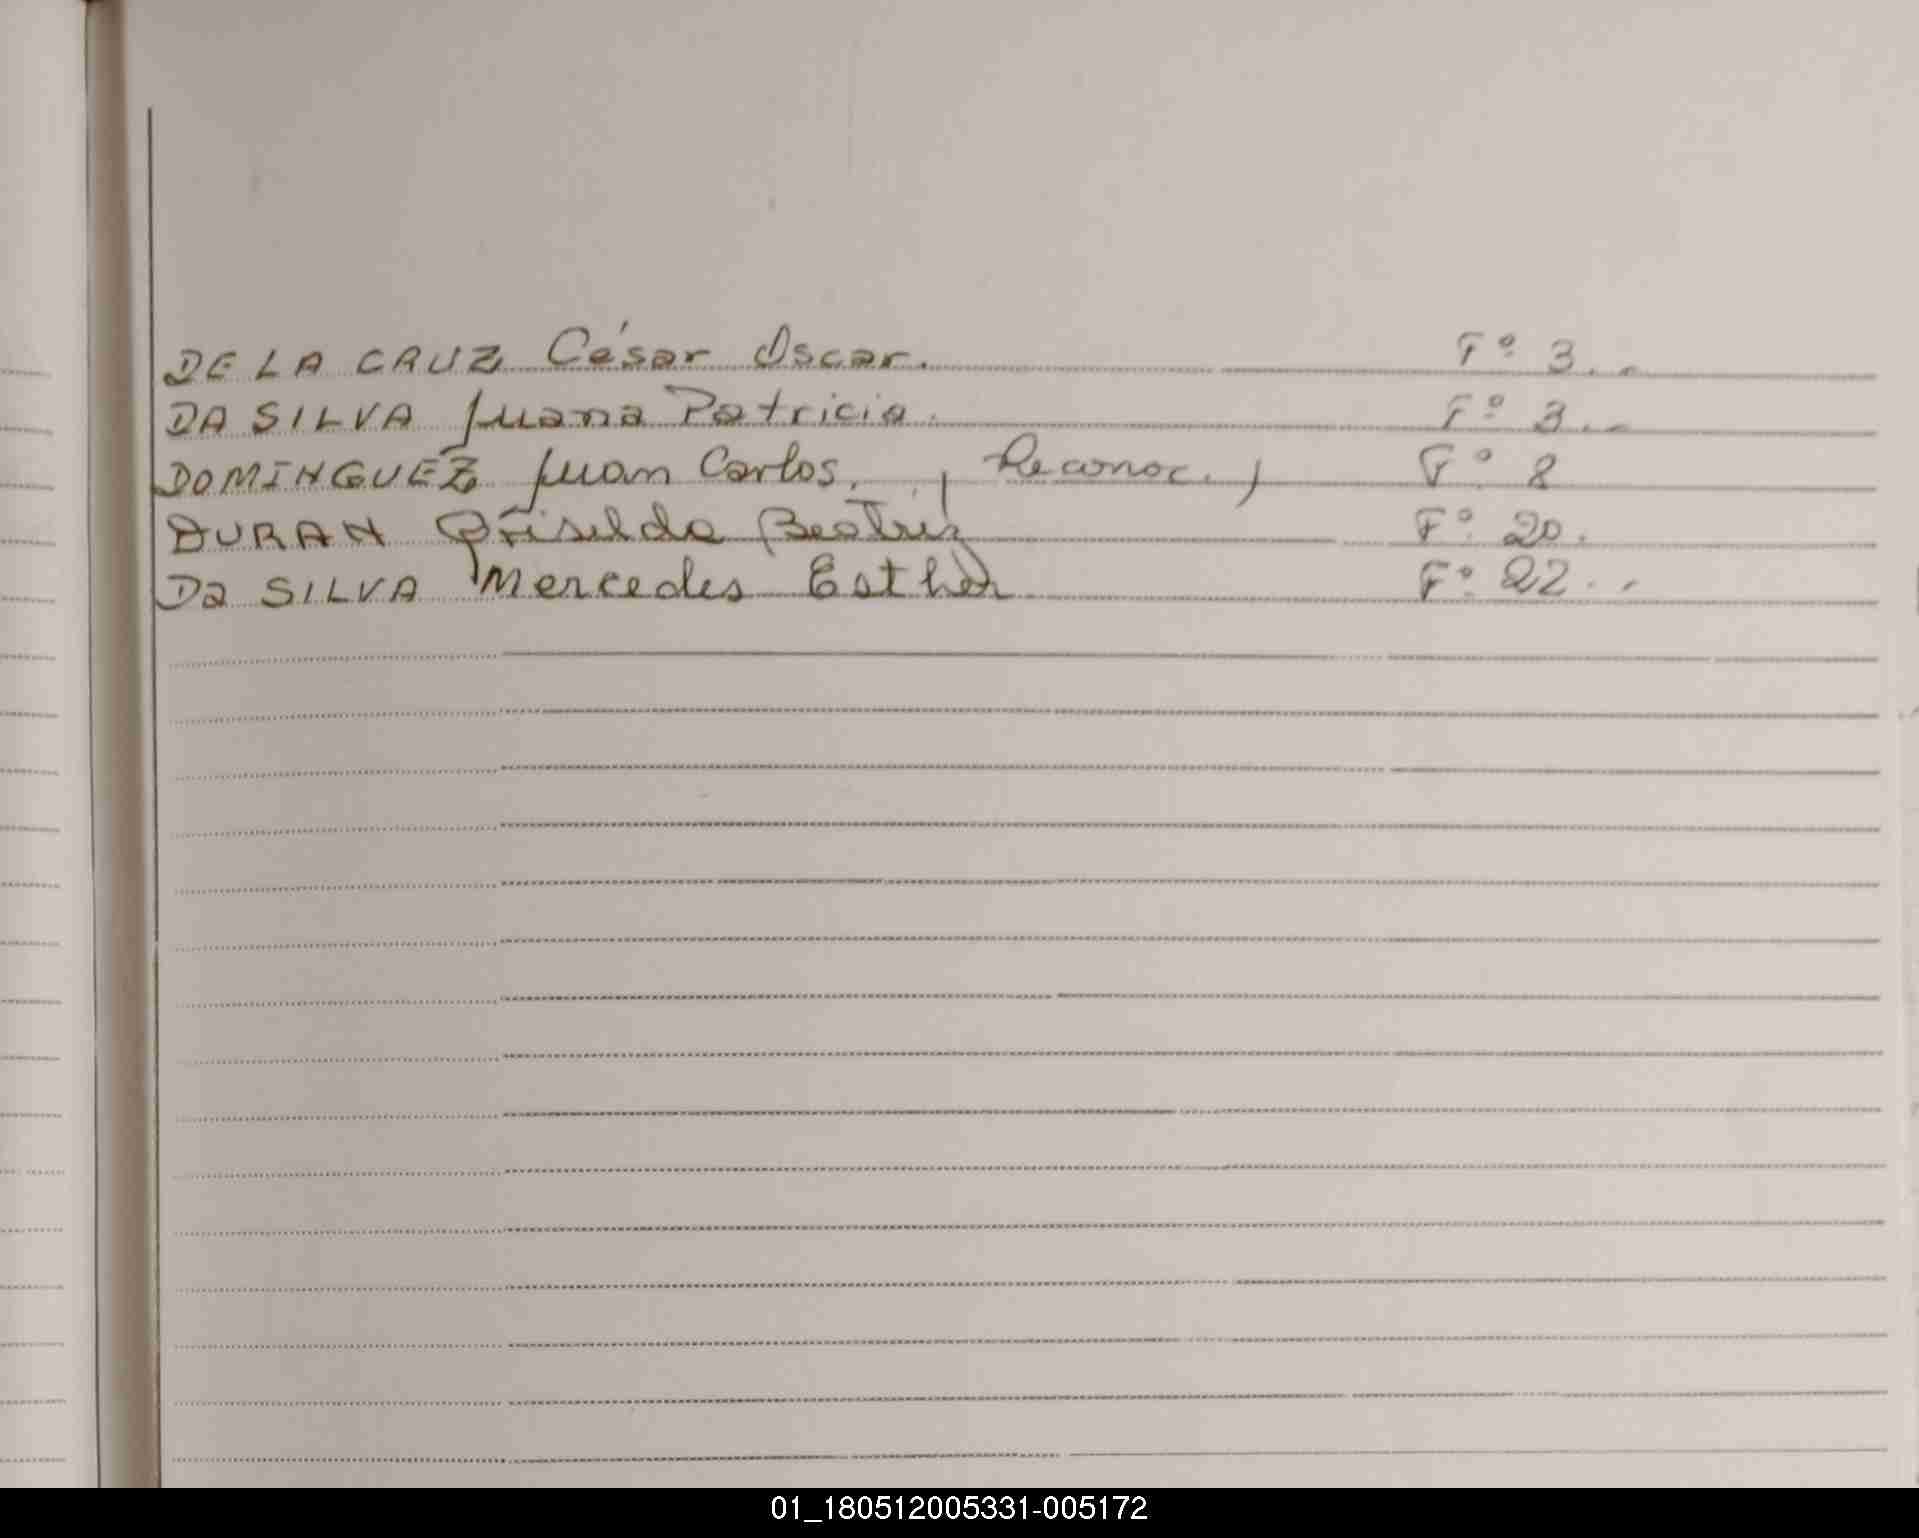 DE LA CRUZ César Oscar. F° 3. .
DA SILVA Juana Patricia. F° 3. .
DOMINGUEZ Juan Carlos. (Reconoc.) F° 8
DURAN Griselda Beatriz F° 20.
Da SILVA Mercedes Esther F° 22. .
01_180512005331-005172